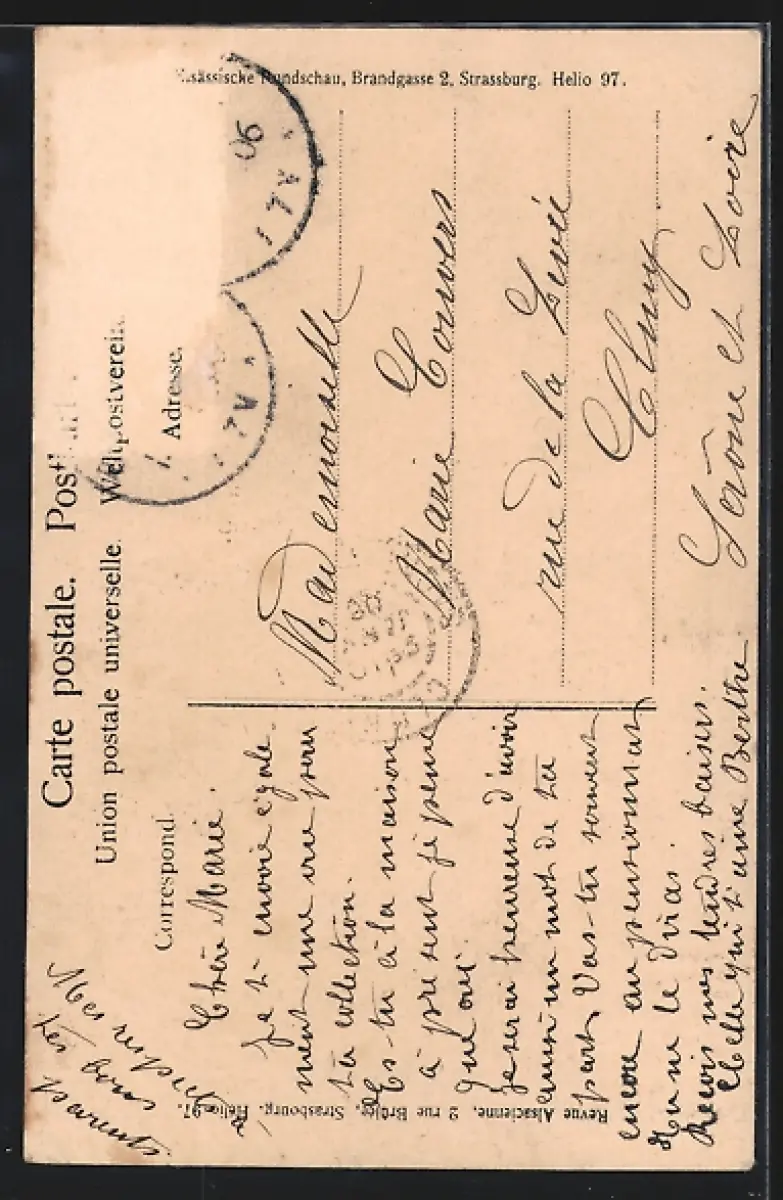 Carte postale. Post
Union postale universelle. Weltpostverein.
Correspond.
Adresse.
Chère Marie.
Je t'envoie égale-
ment une vue pour
ta collection.
Es-tu à la maison
à présent je pense
que oui.
Je serai heureuse d'avoir
aussi un mot de ta
part. Vas-tu souvent
encore au pensionnat
tu me le diras.
Reçois mes tendres baisers.
Celle qui t'aime Berthe
Mes respects à
tes bons
parents
Mademoiselle
Marie Convers
rue de la Levée
Cluny
Saône et Loire
06
Elsässische Rundschau, Brandgasse 2, Strassburg. Helio 97.
Revue Alsacienne, 2 rue Brûlée, Strasbourg. Helio 97.